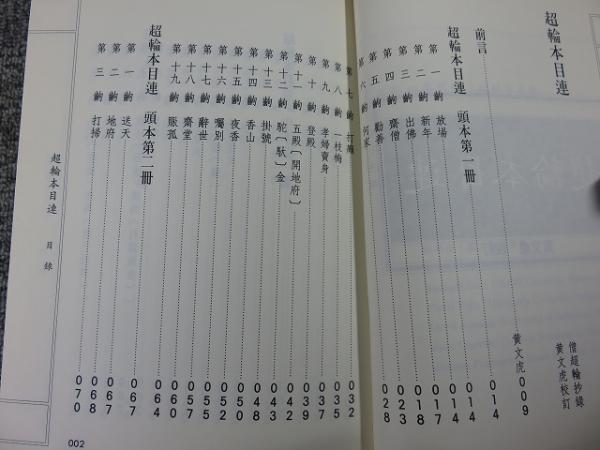 超輪本目連
僧超輪抄錄
黃文虎校訂
前言 黃文虎 009
超輪本目連 頭本第一冊 014
第一齣 放場 014
第二齣 新年 014
第三齣 出佛 017
第四齣 齋僧 018
第五齣 勸善 023
第六齣 何家 028
第七齣 打 032
第八齣 一枝梅 035
第九齣 孝婦賣身 037
第十齣 登殿 039
第十一齣 五殿〔開地府〕 042
第十二齣 駝〔馱〕金 043
第十三齣 掛號 048
第十四齣 香山
第十五齣 夜香
第十六齣 囑別
第十七齣 辭世 055
第十八齣 齋堂 057
第十九齣 賑孤 060
超輪本目連 頭本第二冊 064
第一齣 送天 067
第二齣 地府 068
第三齣 打掃 070
超輪本目連 目錄
002